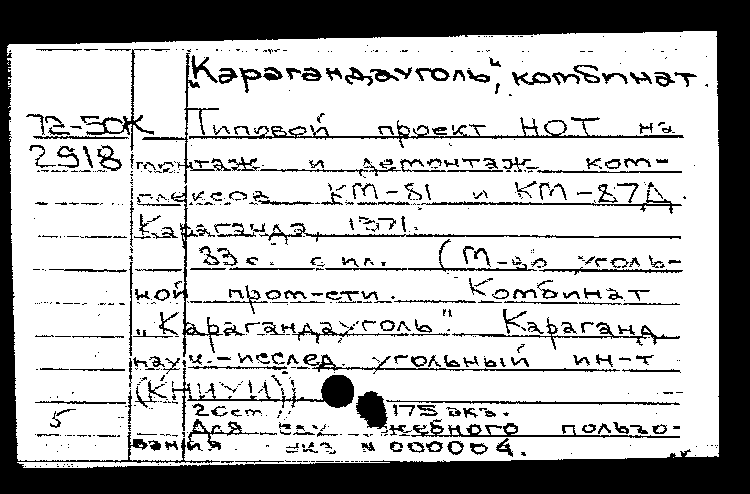 „Карагандауголь“, комбинат.
72-50К Типовой проект НОТ на
2918 монтаж и демонтаж ком-
плексов КМ-81 и КМ-87Д
Караганда, 1971.
33 с. с ил. (М-во уголь-
ной пром-сти. Комбинат
„Карагандауголь“. Караганд.
науч.-исслед. угольный ин-т
(КНИУИ)).
175 экз.
5 Для пользо-
вания экз N 000004.